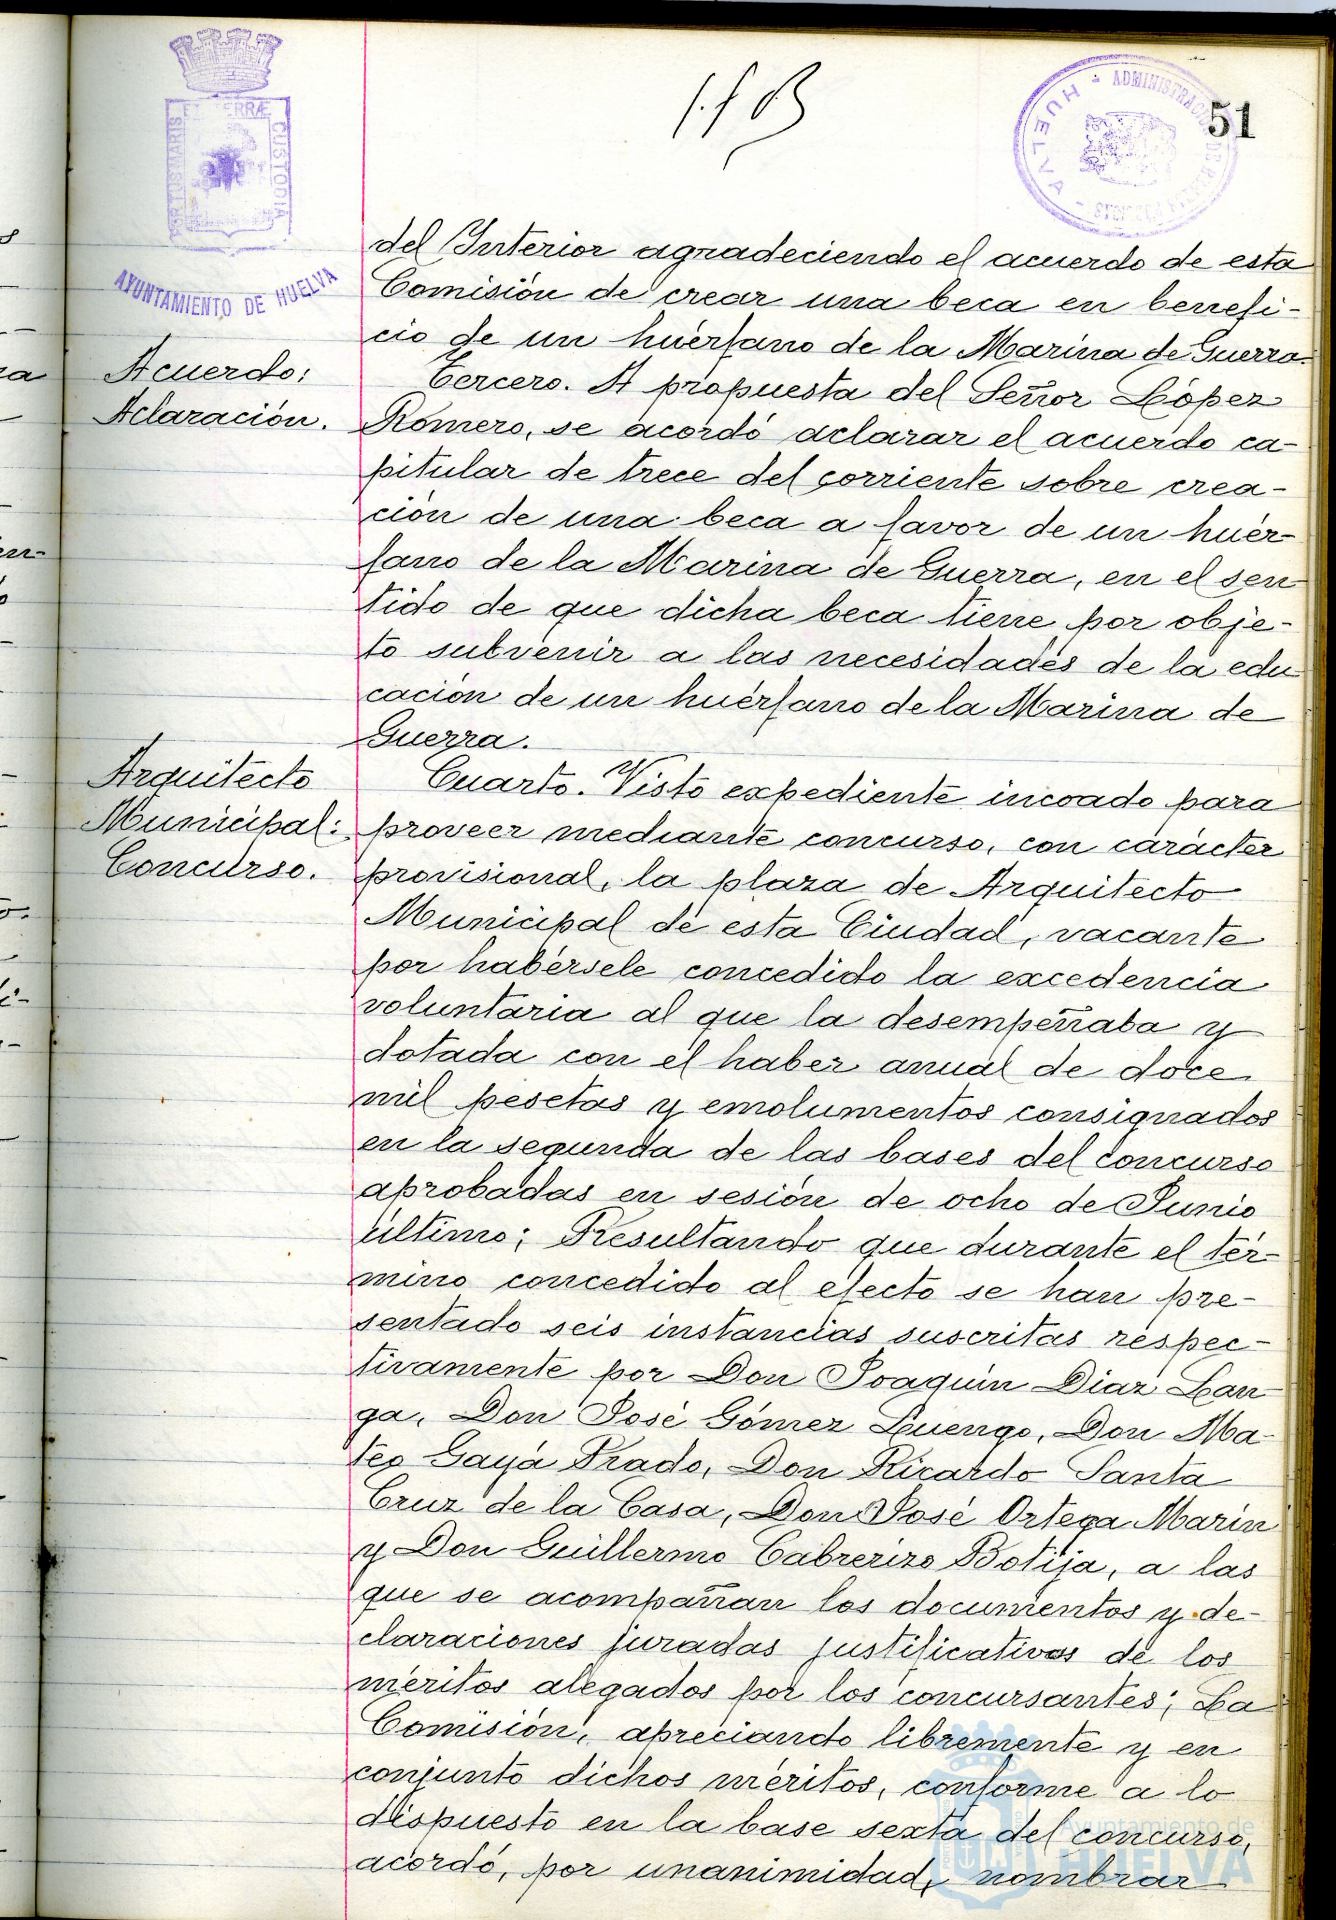 51
ADMINISTRACION DE
HUELVA
PORTUS MARIS ET TERRÆ CUSTODIA
AYUNTAMIENTO DE HUELVA
del Interior agradeciendo el acuerdo de esta
Comisión de crear una beca en benefi-
cio de un huérfano de la Marina de Guerra.
Acuerdo:
Aclaración.
Tercero. A propuesta del Señor López
Romero, se acordó aclarar el acuerdo ca-
pitular de trece del corriente sobre crea-
ción de una beca a favor de un huér-
fano de la Marina de Guerra, en el sen
tido de que dicha beca tiene por obje-
to subvenir a las necesidades de la edu
cación de un huérfano de la Marina de
Guerra.
Arquitecto
Municipal:
Concurso.
Cuarto. Visto expediente incoado para
proveer mediante concurso, con carácter
provisional, la plaza de Arquitecto
Municipal de esta Ciudad, vacante
por habérsele concedido la excedencia
voluntaria al que la desempeñaba y
dotada con el haber anual de doce
mil pesetas y emolumentos consignados
en la segunda de las bases del concurso
aprobadas en sesión de ocho de Junio
último; Resultando que durante el tér-
mino concedido al efecto se han pre-
sentado seis instancias suscritas respec-
tivamente por Don Joaquín Díaz Lan-
ga, Don José Gómez Luengo, Don Ma-
teo Gayá Prado, Don Ricardo Santa
Cruz de la Casa, Don José Ortega Marín
y Don Guillermo Cabrerizo Botija, a las
que se acompañan los documentos y de-
claraciones juradas justificativas de los
méritos alegados por los concursantes; La
Comisión, apreciando libremente y en
conjunto dichos méritos, conforme a lo
dispuesto en la base sexta del concurso,
acordó, por unanimidad, nombrar
Ayuntamiento de
HUELVA